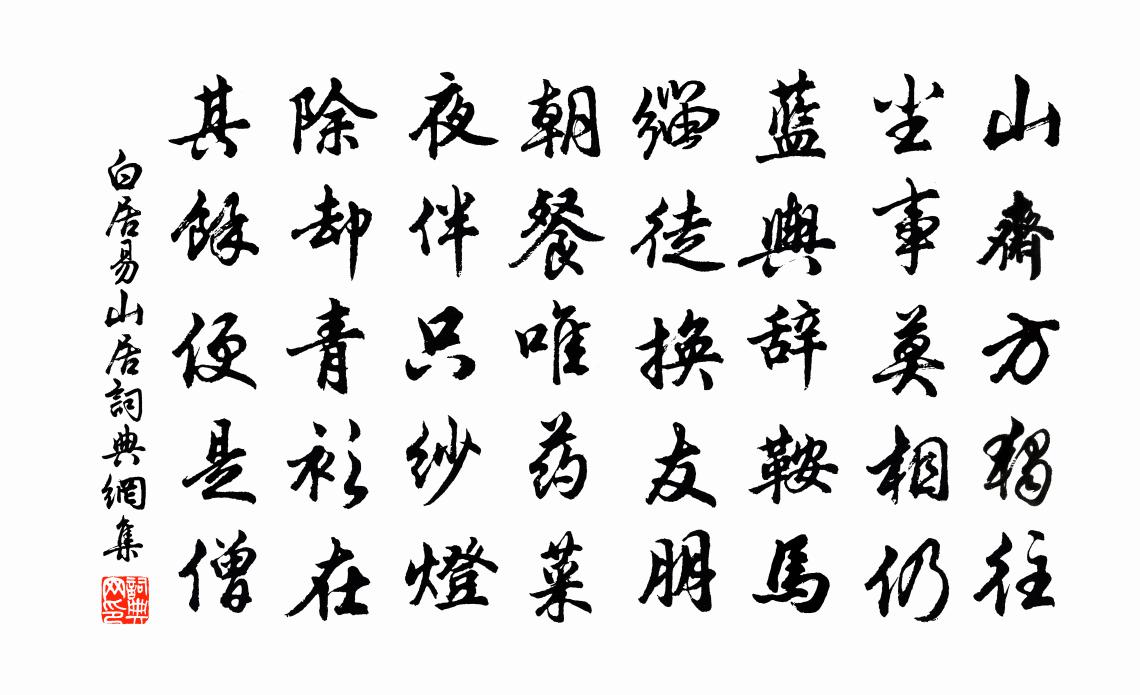 山齋方獨往
尘事莫相仍
藍輿辞鞍馬
緇徒換友朋
朝餐唯药菜
夜伴只紗燈
除却青衫在
其餘便是僧
白居易山居詞典網集
詞典网印